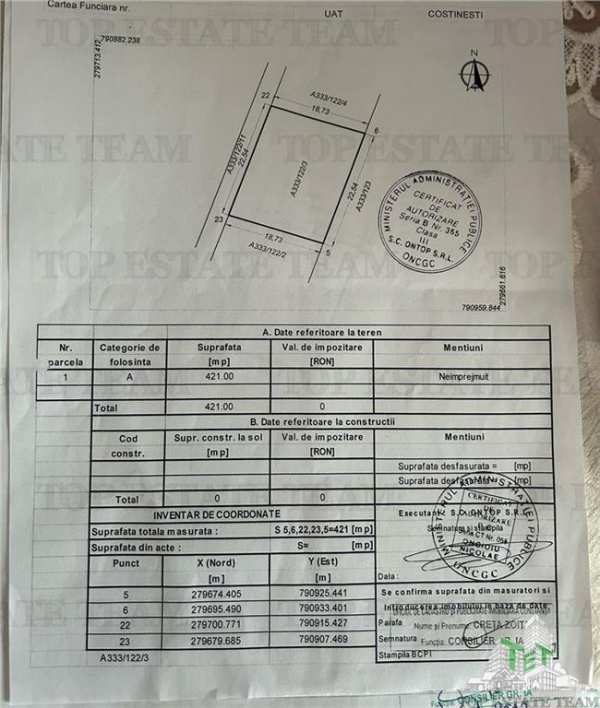 Cartea Funciara nr.
UAT COSTINESTI
TOP ESTATE TEAM
790882.238
279713.412
N
22
A333/122/4
18,73
6
A333/122/11
22,54
A333/122/3
22,54
A333/123
23
18,73
A333/122/2
5
MINISTERUL ADMINISTRAȚIEI PUBLICE
CERTIFICAT
DE
AUTORIZARE
Seria B Nr. 355
Clasa
III
S.C. ONTOP S.R.L.
ONCGC
279661.616
790959.844
A. Date referitoare la teren
Nr. parcela Categorie de folosinta Suprafata [mp] Val. de impozitare [RON] Mentiuni
1 A 421.00 Neimprejmuit
Total 421.00 0
B. Date referitoare la constructii
Cod constr. Supr. constr. la sol [mp] Val. de impozitare [RON] Mentiuni
Suprafata desfasurata = [mp]
Suprafata desfasurata= [mp]
Total 0 0
INVENTAR DE COORDONATE
Suprafata totala masurata : S 5,6,22,23,5=421 [mp]
Suprafata din acte : S= [mp]
Punct X (Nord) [m] Y (Est) [m]
5 279674.405 790925.441
6 279695.490 790933.401
22 279700.771 790915.427
23 279679.685 790907.469
A333/122/3
Executant: S.C. ONTOP S.R.L.
MINISTERUL ADMINISTRAȚIEI PUBLICE
CERTIFICAT
DE
AUTORIZARE
NICOLAE
ONCGC
Data :
Se confirma suprafata din masuratori si
Introducerea imobilului in baza de date
Parafa
Nume și Prenume: CRETA ZOIT
Semnatura
Funcția: CONSILIER GR. IA
Stampila BCPI
TET
CONSILIER GR. IA